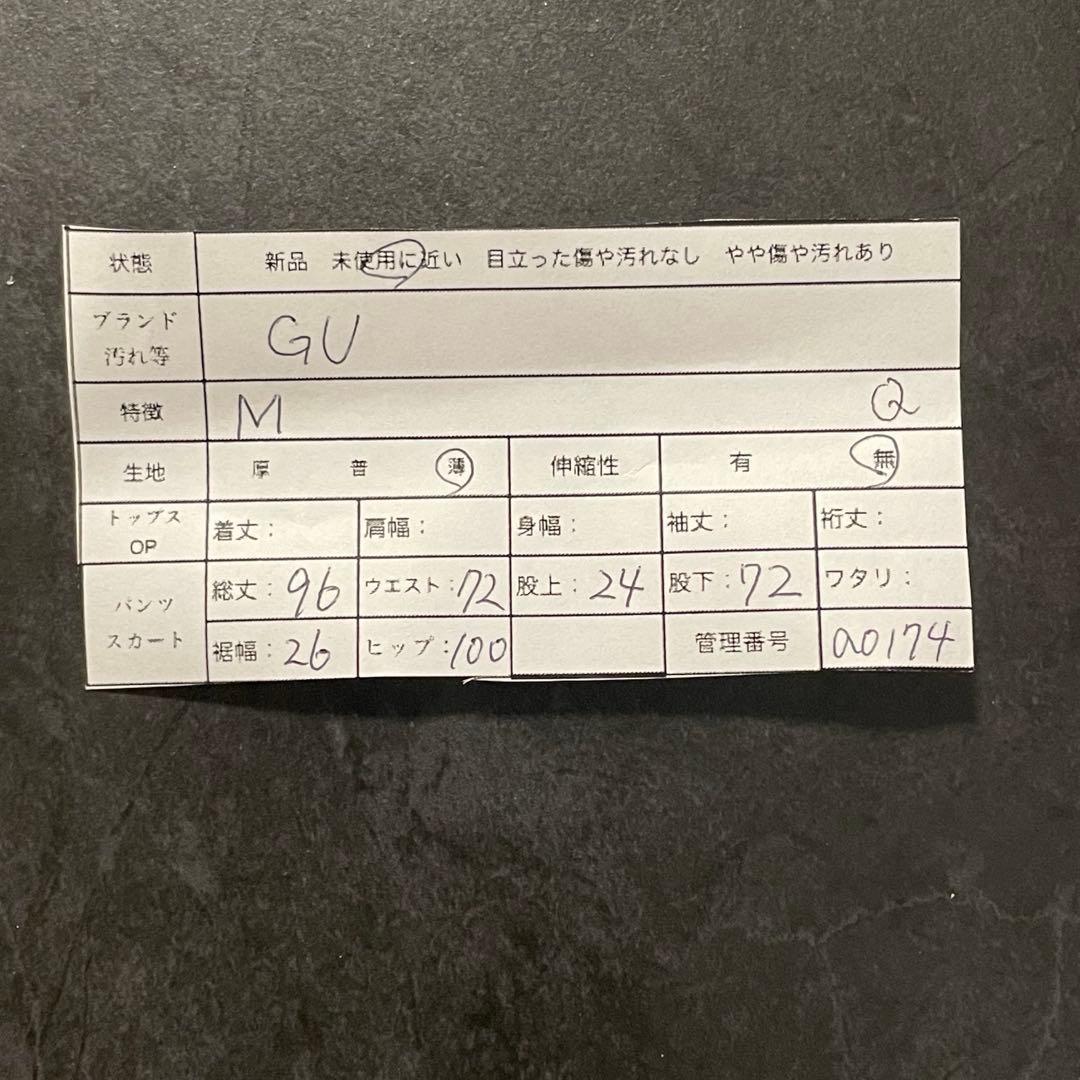 状態 新品 未使用に近い 目立った傷や汚れなし やや傷や汚れあり
ブランド
汚れ等 GU
特徴 M Q
生地 厚 普 薄 伸縮性 有 無
トップス
OP 着丈: 肩幅: 身幅: 袖丈: 裄丈:
パンツ
スカート
総丈:96 ウエスト:72 股上:24 股下:72 ワタリ:
裾幅:26 ヒップ:100 管理番号 a0174